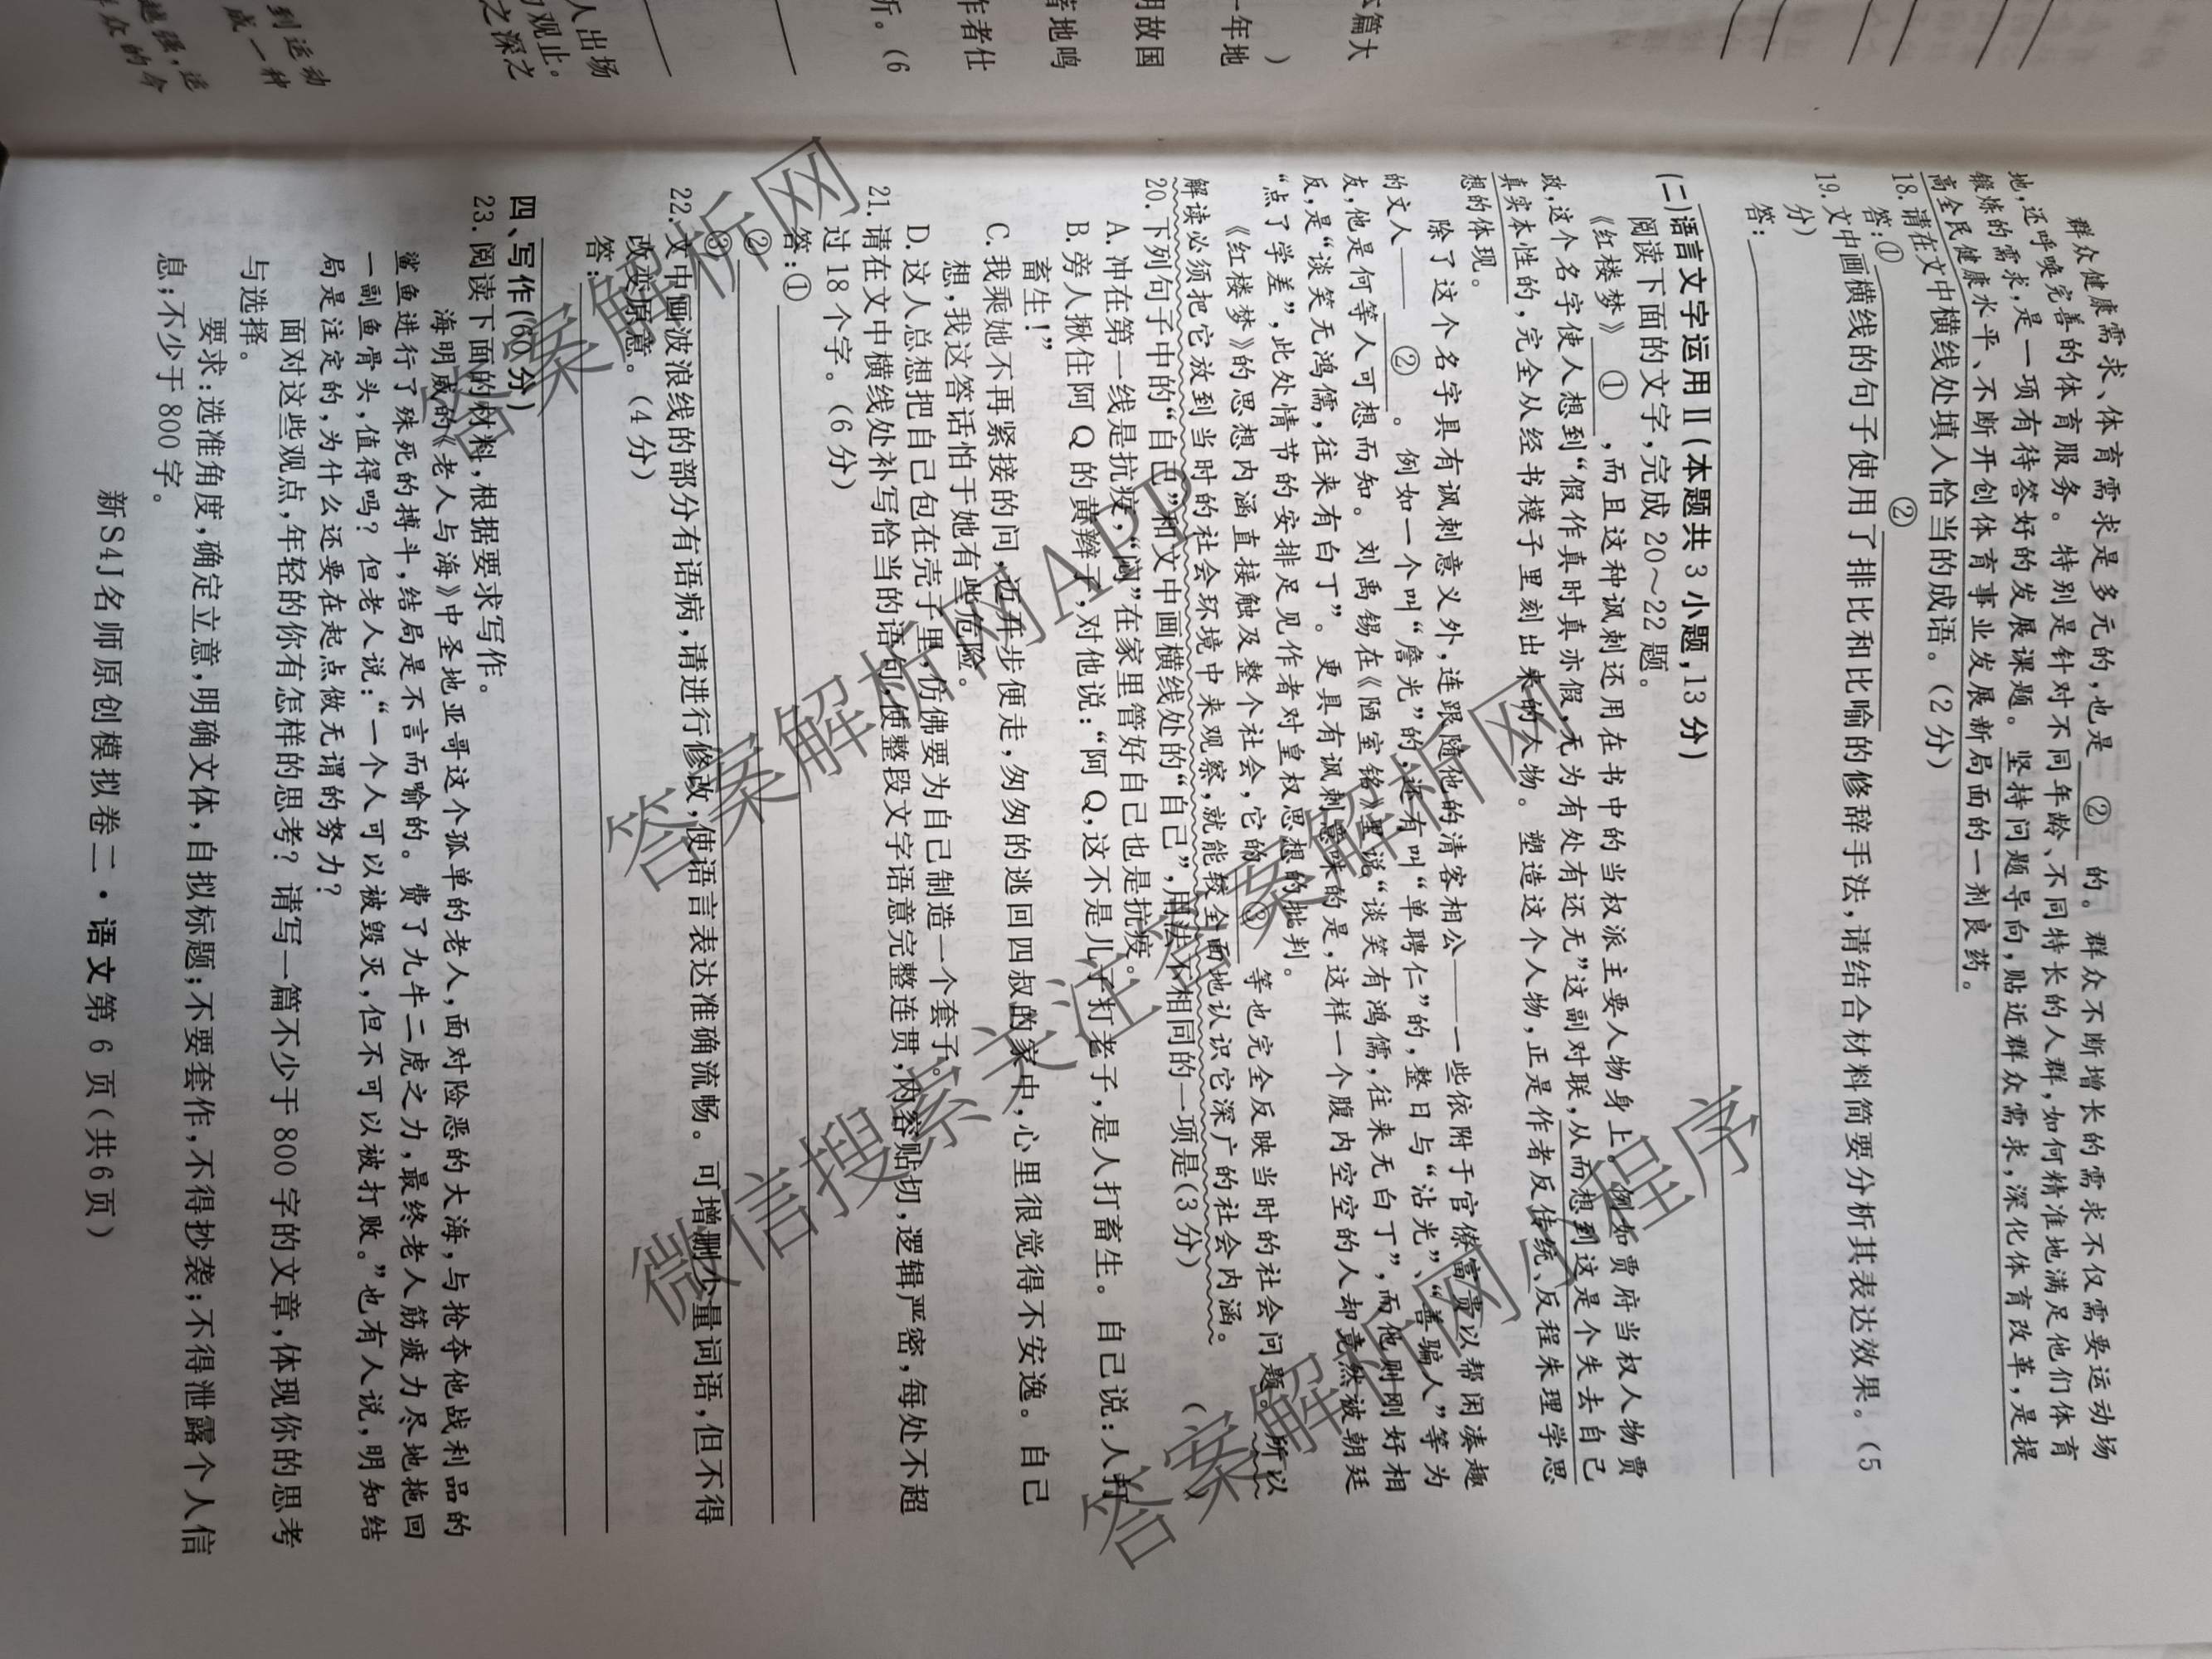 群众健康需求、体育需求是多元的，也是 ② 的。群众不断增长的需求不仅需要运动场
地，还呼唤完善的体育服务。特别是针对不同年龄、不同特长的人群，如何精准地满足他们体育
锻炼的需求，是一项有待答好的发展课题。坚持问题导向，贴近群众需求，深化体育改革，是提
高全民健康水平、不断开创体育事业发展新局面的一剂良药。
18.请在文中横线处填入恰当的成语。（2分）
答：① ②
19.文中画横线的句子使用了排比和比喻的修辞手法，请结合材料简要分析其表达效果。（5
分）
答：
(二)语言文字运用Ⅱ(本题共3小题，13分)
阅读下面的文字，完成20～22题。
《红楼梦》 ① ，而且这种讽刺还用在书中的当权派主要人物身上。例如贾府当权人物贾
政，这个名字使人想到“假作真时真亦假，无为有处有还无”这副对联，从而想到这是个失去自己
真实本性的，完全从经书模子里刻出来的人物。塑造这个人物，正是作者反传统、反程朱理学思
想的体现。
除了这个名字具有讽刺意义外，连跟随他的清客相公——一些依附于官僚富贵以帮闲凑趣
的文人—— ② 。例如一个叫“詹光”的，还有叫“单聘仁”的，整日与“沾光”、“善骗人”等为
友，他是何等人可想而知。刘禹锡在《陋室铭》里说“谈笑有鸿儒，往来无白丁”，而他则刚好相
反，是“谈笑无鸿儒，往来有白丁”。更具有讽刺意味的是，这样一个腹内空空的人却竟然被朝廷
“点了学差”，此处情节的安排足见作者对皇权思想的批判。
《红楼梦》的思想内涵直接触及整个社会，它的 ③ 等也完全反映当时的社会问题。所以
解读必须把它放到当时的社会环境中来观察，就能较全面地认识它深广的社会内涵。
20.下列句子中的“自己”和文中画横线处的“自己”，用法不相同的一项是(3分) ( )
A.冲在第一线是抗疫，“闷”在家里管好自己也是抗疫。
B.旁人揪住阿Q的黄辫子，对他说：“阿Q，这不是儿子打老子，是人打畜生。自己说：人打
畜生！”
C.我乘她不再紧接的问，迈开步便走，匆匆的逃回四叔的家中，心里很觉得不安逸。自己
想，我这答话怕于她有些危险。
D.这人总想把自己包在壳子里，仿佛要为自己制造一个套子。
21.请在文中横线处补写恰当的语句，使整段文字语意完整连贯，内容贴切，逻辑严密，每处不超
过18个字。（6分）
答：①
②
③
22.文中画波浪线的部分有语病，请进行修改，使语言表达准确流畅。可增删少量词语，但不得
改变原意。（4分）
答：
四、写作(60分)
23.阅读下面的材料，根据要求写作。
海明威的《老人与海》中圣地亚哥这个孤单的老人，面对险恶的大海，与抢夺他战利品的
鲨鱼进行了殊死的搏斗，结局是不言而喻的。费了九牛二虎之力，最终老人筋疲力尽地拖回
一副鱼骨头，值得吗？但老人说：“一个人可以被毁灭，但不可以被打败。”也有人说，明知结
局是注定的，为什么还要在起点做无谓的努力？
面对这些观点，年轻的你有怎样的思考？请写一篇不少于800字的文章，体现你的思考
与选择。
要求：选准角度，确定立意，明确文体，自拟标题；不要套作，不得抄袭；不得泄露个人信
息；不少于800字。
新S4J名师原创模拟卷二·语文第6页(共6页)
篇大
一年地
)
明故国
者地鸣
作者仕
析。（6
人出场
观止。
之深之
到运动
成一种
越强，运
群众的今
答案解析网
答案解析网APP
微信搜索关注
答案解析网
答案解析网
小程序